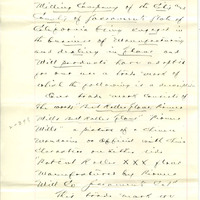 Milling Company of the City and
County of Sacramento State of
California being engaged in
the business of Manufacturing
and dealing in Flour and
Mill products have adopted
for our use a trade mark of
which the following is a
Our trade mark consists of
the words
Mills and Roller Flour Pioneer
Mills a picture of a Chinese
Mandarin as official with
Characters on either side
Patent Roller XXX flour
Manufactured by Pioneer
Mill Co Sacramento Cal"
This trade mark we